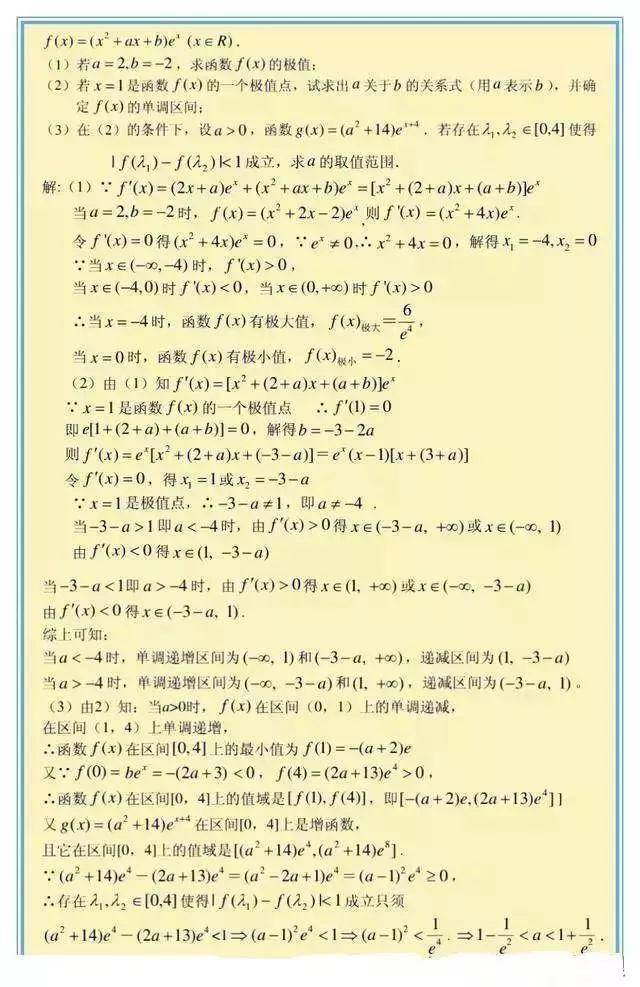 f(x)=(x²+ax+b)eˣ (x∈R).
(1)若a=2,b=−2,求函数f(x)的极值;
(2)若x=1是函数f(x)的一个极值点,试求出a关于b的关系式(用a表示b),并确
定f(x)的单调区间;
(3)在(2)的条件下,设a>0,函数g(x)=(a²+14)eˣ⁺⁴.若存在λ₁,λ₂∈[0,4]使得
|f(λ₁)−f(λ₂)|<1成立,求a的取值范围.
解:(1)∵f′(x)=(2x+a)eˣ+(x²+ax+b)eˣ=[x²+(2+a)x+(a+b)]eˣ
当a=2,b=−2时,f(x)=(x²+2x−2)eˣ,则f′(x)=(x²+4x)eˣ.
令f′(x)=0得(x²+4x)eˣ=0,∵eˣ≠0,∴x²+4x=0,解得x₁=−4,x₂=0
∵当x∈(−∞,−4)时,f′(x)>0,
当x∈(−4,0)时f′(x)<0,当x∈(0,+∞)时f′(x)>0
∴当x=−4时,函数f(x)有极大值,f(x)极大=6/e⁴,
当x=0时,函数f(x)有极小值,f(x)极小=−2.
(2)由(1)知f′(x)=[x²+(2+a)x+(a+b)]eˣ
∵x=1是函数f(x)的一个极值点 ∴f′(1)=0
即e[1+(2+a)+(a+b)]=0,解得b=−3−2a
则f′(x)=eˣ[x²+(2+a)x+(−3−a)]=eˣ(x−1)[x+(3+a)]
令f′(x)=0,得x₁=1或x₂=−3−a
∵x=1是极值点,∴−3−a≠1,即a≠−4 .
当−3−a>1即a<−4时,由f′(x)>0得x∈(−3−a, +∞)或x∈(−∞, 1)
由f′(x)<0得x∈(1, −3−a)
当−3−a<1即a>−4时,由f′(x)>0得x∈(1, +∞)或x∈(−∞, −3−a)
由f′(x)<0得x∈(−3−a, 1).
综上可知:
当a<−4时,单调递增区间为(−∞, 1)和(−3−a, +∞),递减区间为(1, −3−a)
当a>−4时,单调递增区间为(−∞, −3−a)和(1, +∞),递减区间为(−3−a, 1)。
(3)由2)知:当a>0时,f(x)在区间(0,1)上的单调递减,
在区间(1,4)上单调递增,
∴函数f(x)在区间[0,4]上的最小值为f(1)=−(a+2)e
又∵f(0)=beˣ=−(2a+3)<0,f(4)=(2a+13)e⁴>0,
∴函数f(x)在区间[0,4]上的值域是[f(1),f(4)],即[−(a+2)e,(2a+13)e⁴]]
又g(x)=(a²+14)eˣ⁺⁴在区间[0,4]上是增函数,
且它在区间[0,4]上的值域是[(a²+14)e⁴,(a²+14)e⁸].
∵(a²+14)e⁴−(2a+13)e⁴=(a²−2a+1)e⁴=(a−1)²e⁴≥0,
∴存在λ₁,λ₂∈[0,4]使得|f(λ₁)−f(λ₂)|<1成立只须
(a²+14)e⁴−(2a+13)e⁴<1⇒(a−1)²e⁴<1⇒(a−1)²<1/e⁴.⇒1−1/e²<a<1+1/e².